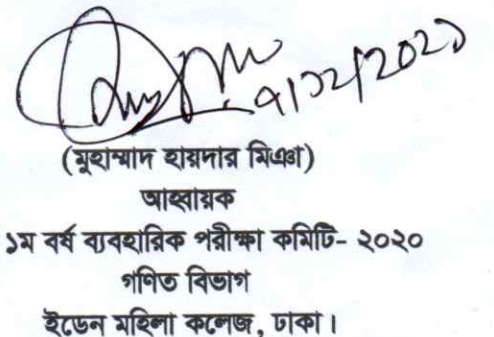 ৭/১২/২০২১
(মুহাম্মাদ হায়দার মিঞা)
আহ্বায়ক
১ম বর্ষ ব্যবহারিক পরীক্ষা কমিটি- ২০২০
গণিত বিভাগ
ইডেন মহিলা কলেজ, ঢাকা।